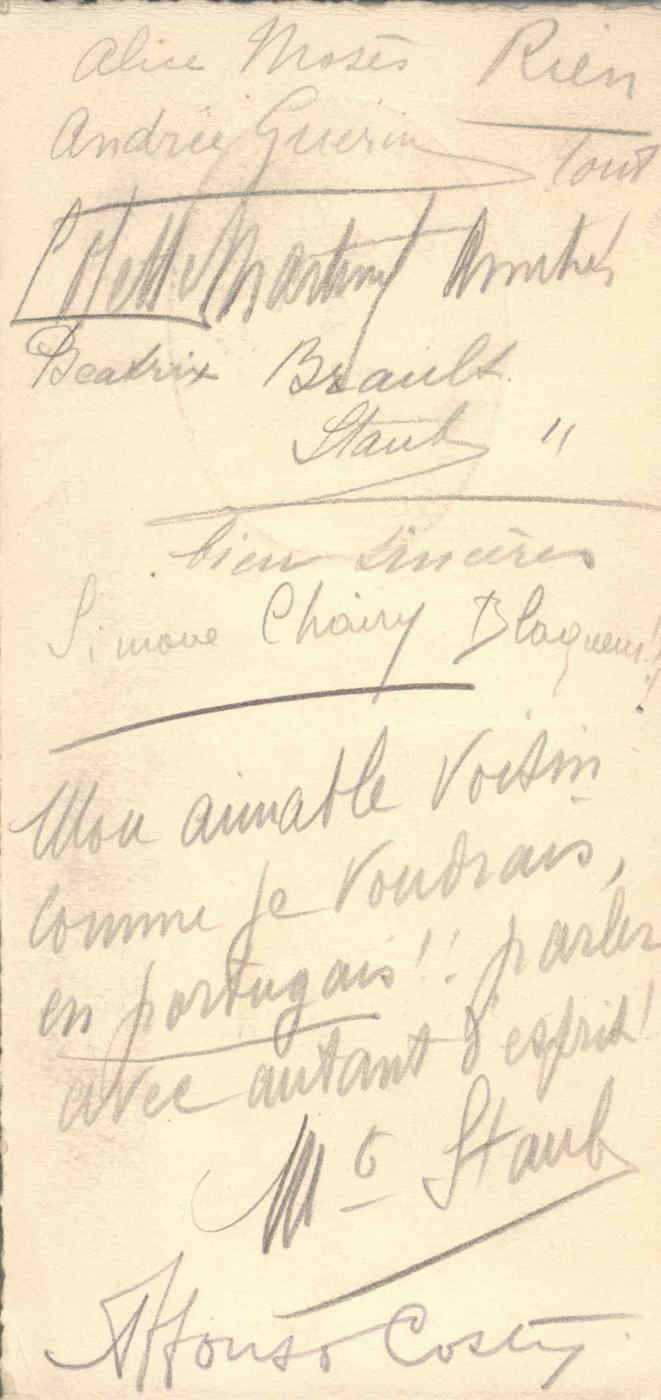 Alice Mosès Rien
Andrée Guérin Tout
Colette Martiny Amitiés
Beatrix Brault
Staub "
bien sincères
Simone Chairy Blagueur!!
Mon aimable Voisin
Comme je Voudrais,
en portugais!! parler
avec autant d'esprit!
Staub
Affonso Costa